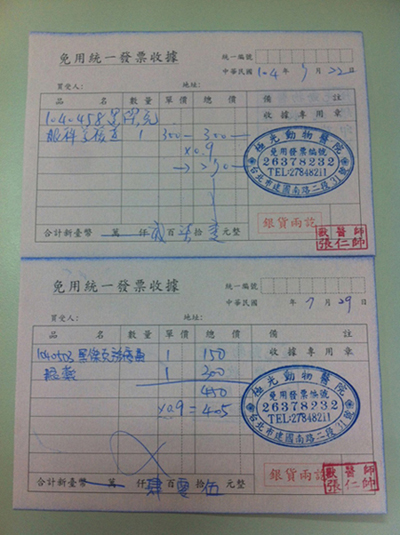 免用統一發票收據
統一編號
中華民國 104 年 7 月 22 日
買受人： 地址：
品名 數量 單價 總價 備註
收據專用章
1040458
眼科 檢查 1 300 300
x0.9
270
極光動物醫院
免用發票編號
26378232
TEL:27848211
台北市建國南路二段31號
銀貨兩訖
獸醫師
張仁帥
合計新臺幣 萬 仟 貳 百 柒 拾 零 元整
免用統一發票收據
統一編號
中華民國 年 7 月 29 日
買受人： 地址：
品名 數量 單價 總價 備註
收據專用章
1 150
1 300
450
x0.9 = 405
極光動物醫院
免用發票編號
26378232
TEL:27848211
台北市建國南路二段31號
銀貨兩訖
獸醫師
張仁帥
合計新臺幣 萬 仟 肆 百 零 拾 伍 元整